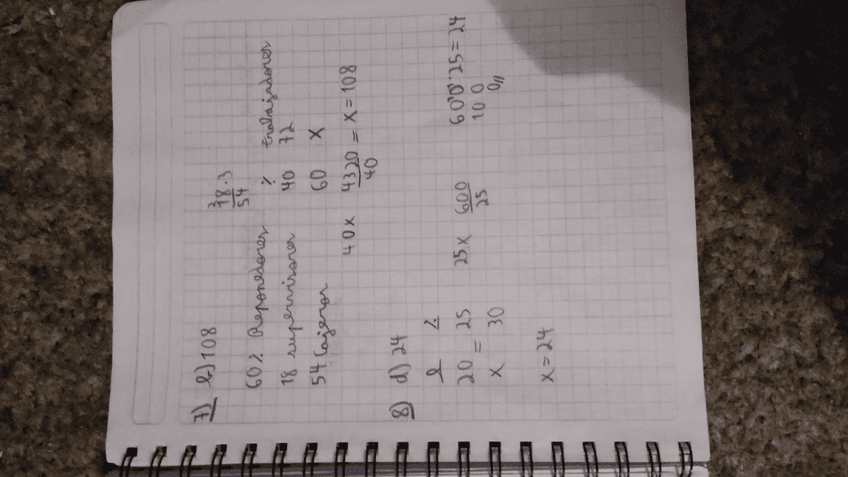 7) b) 108
18·3
54
60% Reponedores
18 supervisores
54 Cajeros
% trabajadores
40 72
60 X
40x 4320/40 = x = 108
8) d) 24
l %
20 = 25
x 30
25x 600/25
600:25=24
100
0//
x = 24